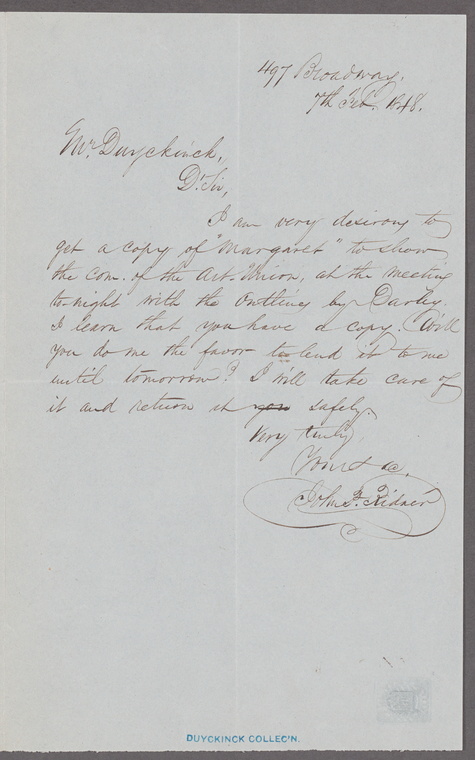 497 Broadway.
7th Feb. 1848.
Mr. Duyckinck,
Dr. Sir,
I am very desirous to
get a copy of "Margaret" to show
the Com. of the Art-Union, at the meeting
to-night with the Outlines by Darley.
I learn that you have a copy. Will
you do me the favor to lend it to me
until tomorrow? I will take care of
it and return it you safely.
Very truly
Yours &c.
John P. Ridner
DUYCKINCK COLLEC'N.